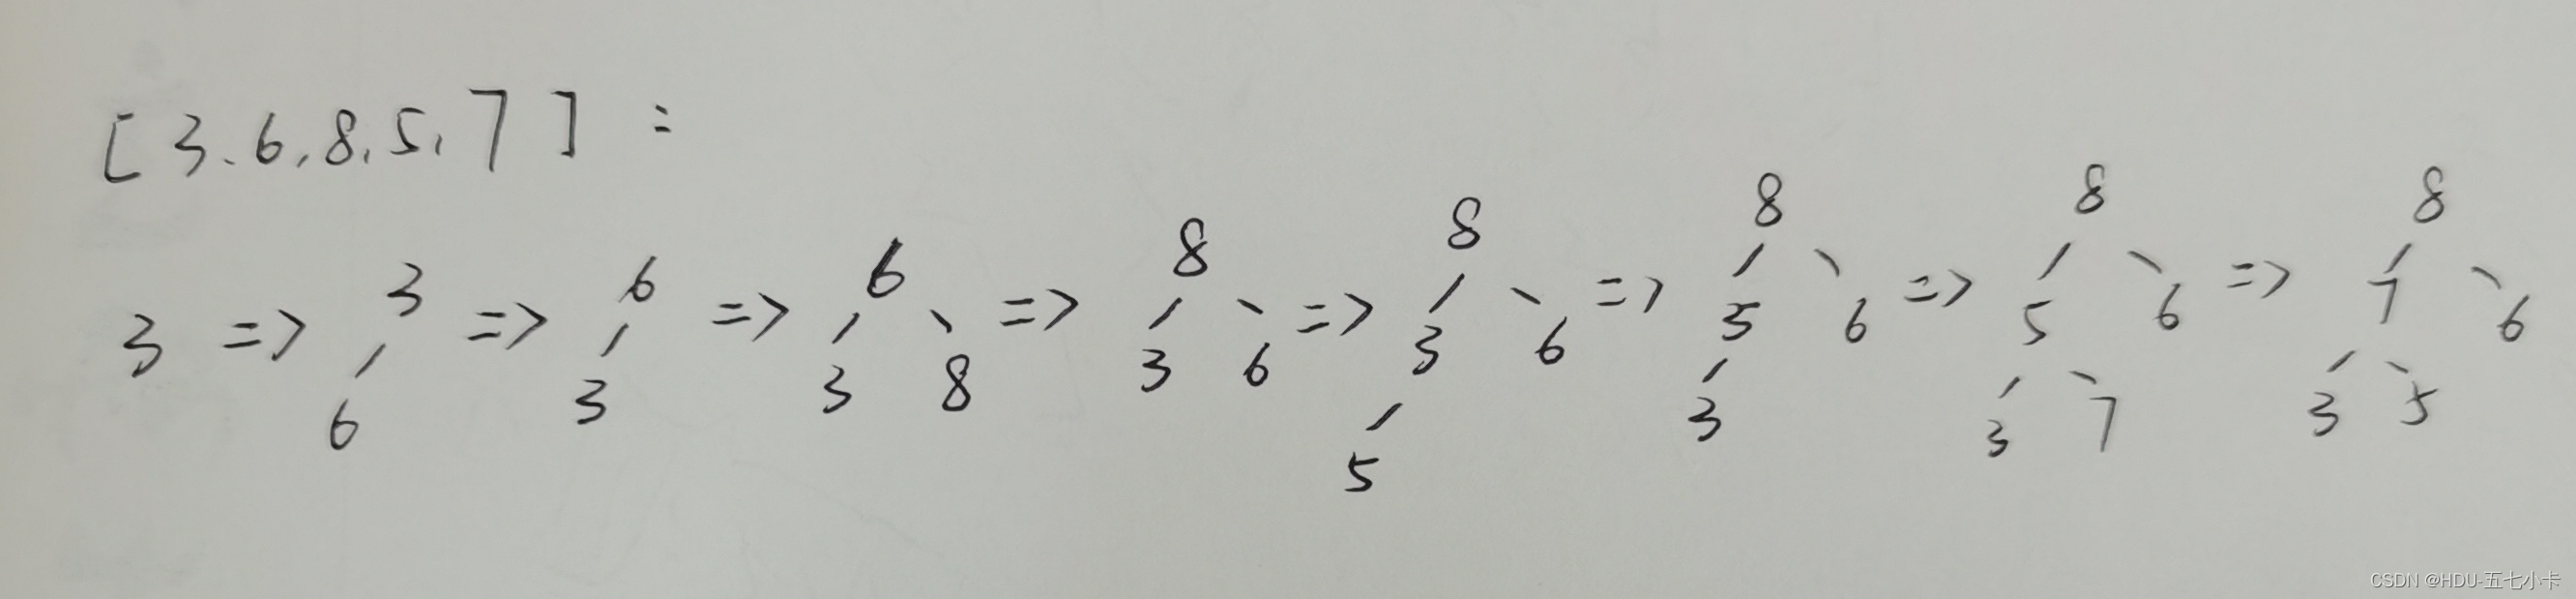 [3、6,8,5,7]:
3 => 3 => 6 => 6 => 8 => 8 => 8 => 8 => 8
6 3 3 8 3 6 3 6 5 6 5 6 7 6
5 3 3 7 3 5
CSDN @HDU-五七小卡